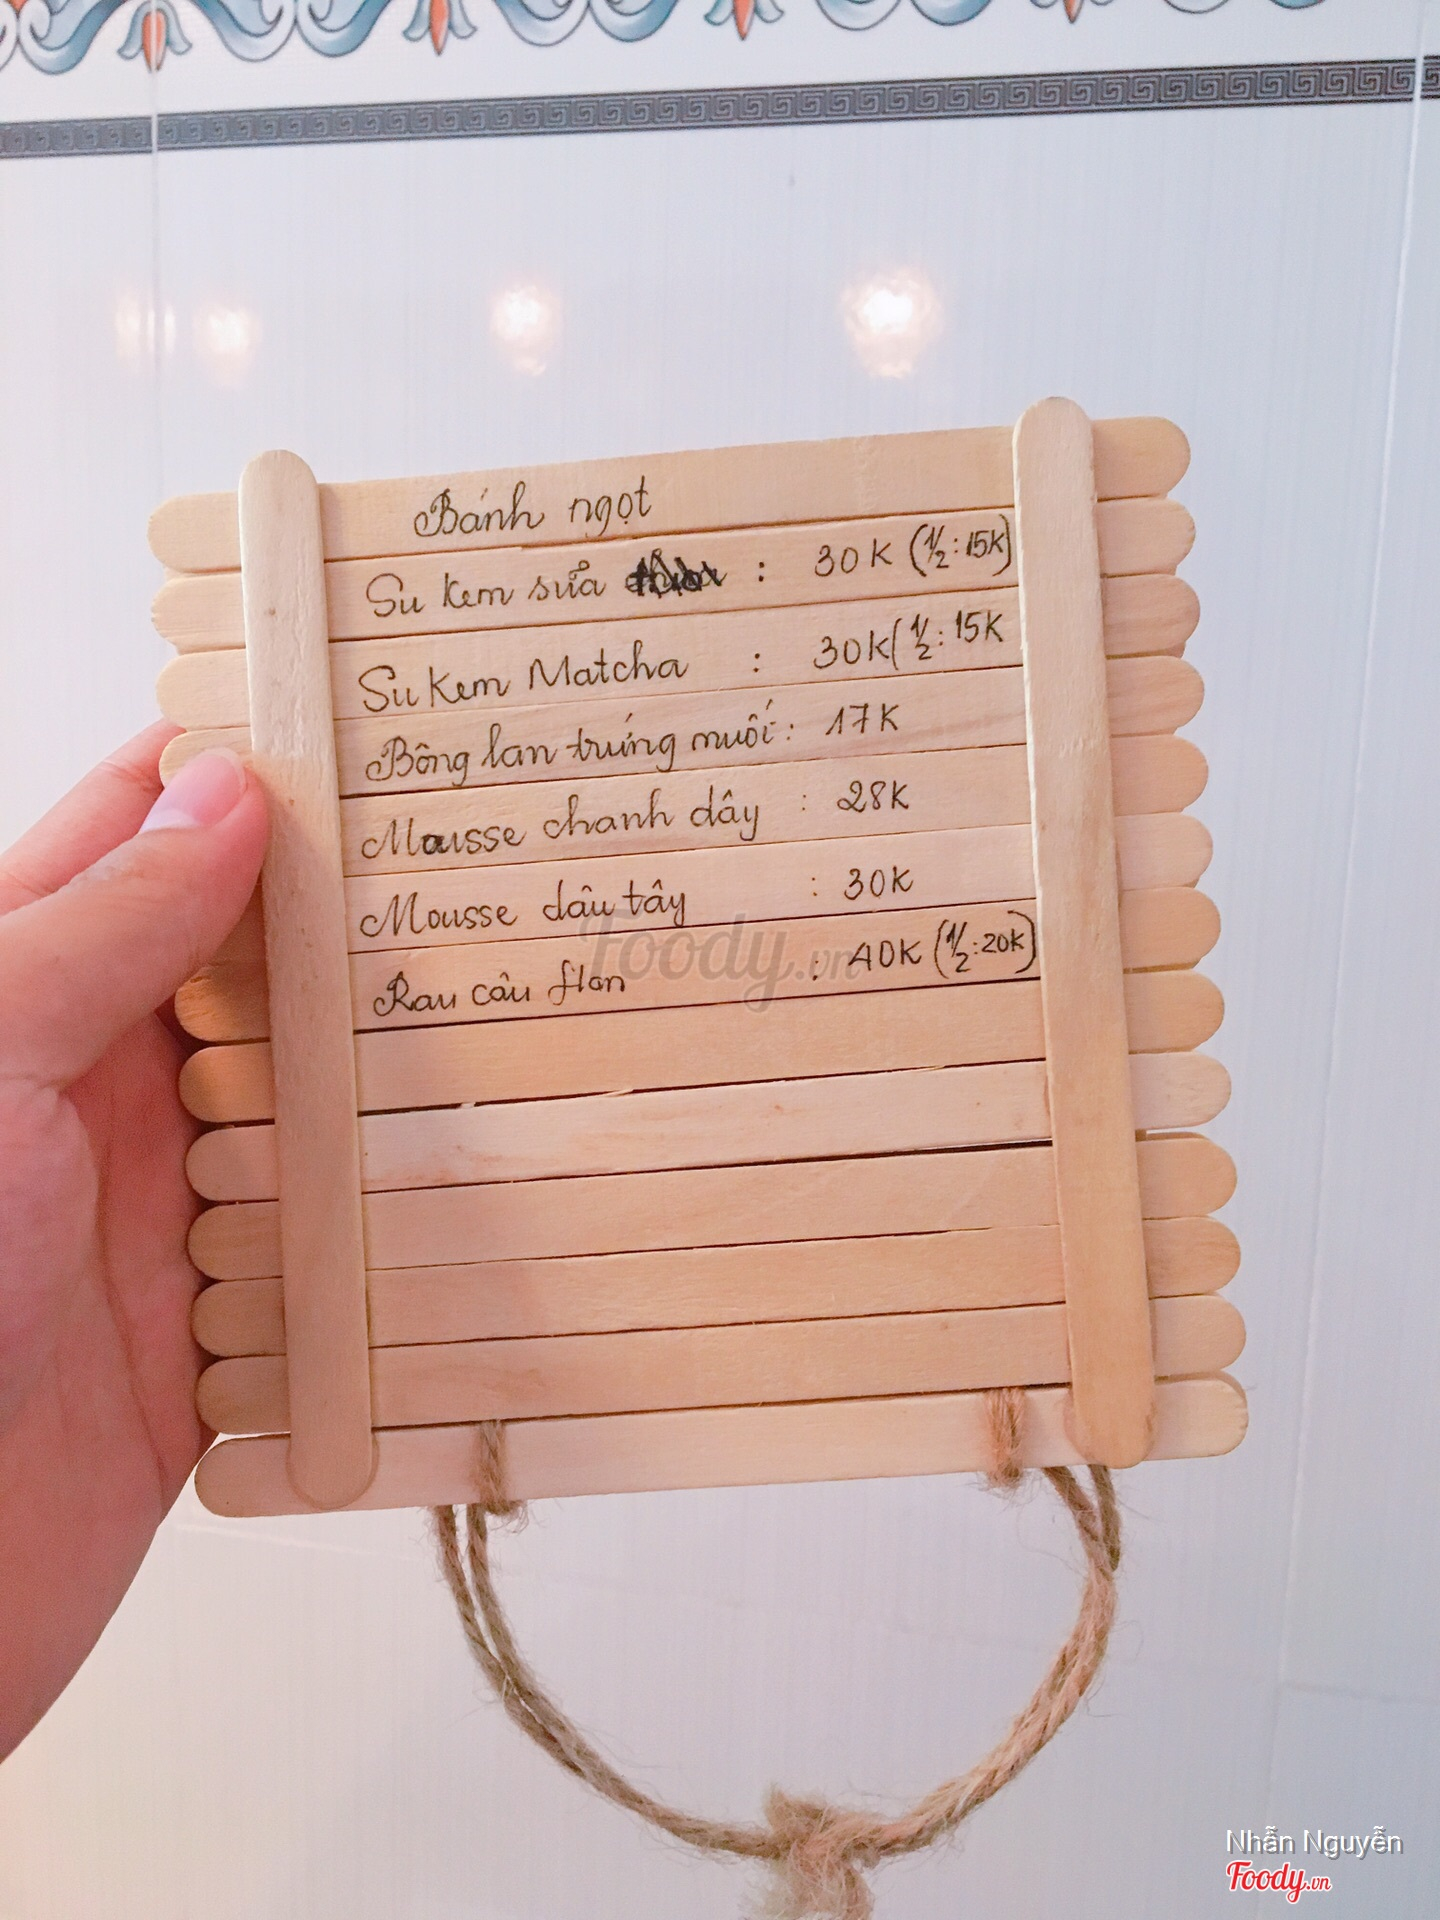 Bánh ngọt
Su kem sửa : 30K (1/2: 15K)
Su kem Matcha : 30K( 1/2: 15K
Bông lan trứng muối : 17K
Mousse chanh dây : 28K
Mousse dâu tây : 30K
Rau câu flan : 40K (1/2: 20K)
Foody.vn
Nhẫn Nguyễn
Foody.vn